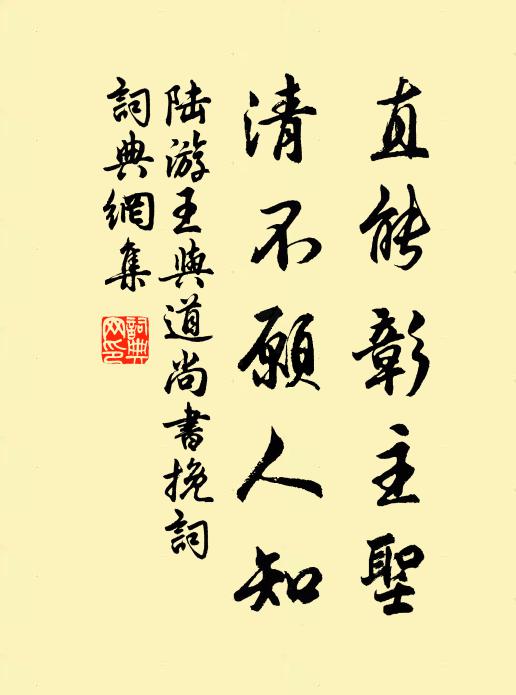 直能彰主聖
清不願人知
陸游王與道尚書挽詞
詞典網集
詞典
网印